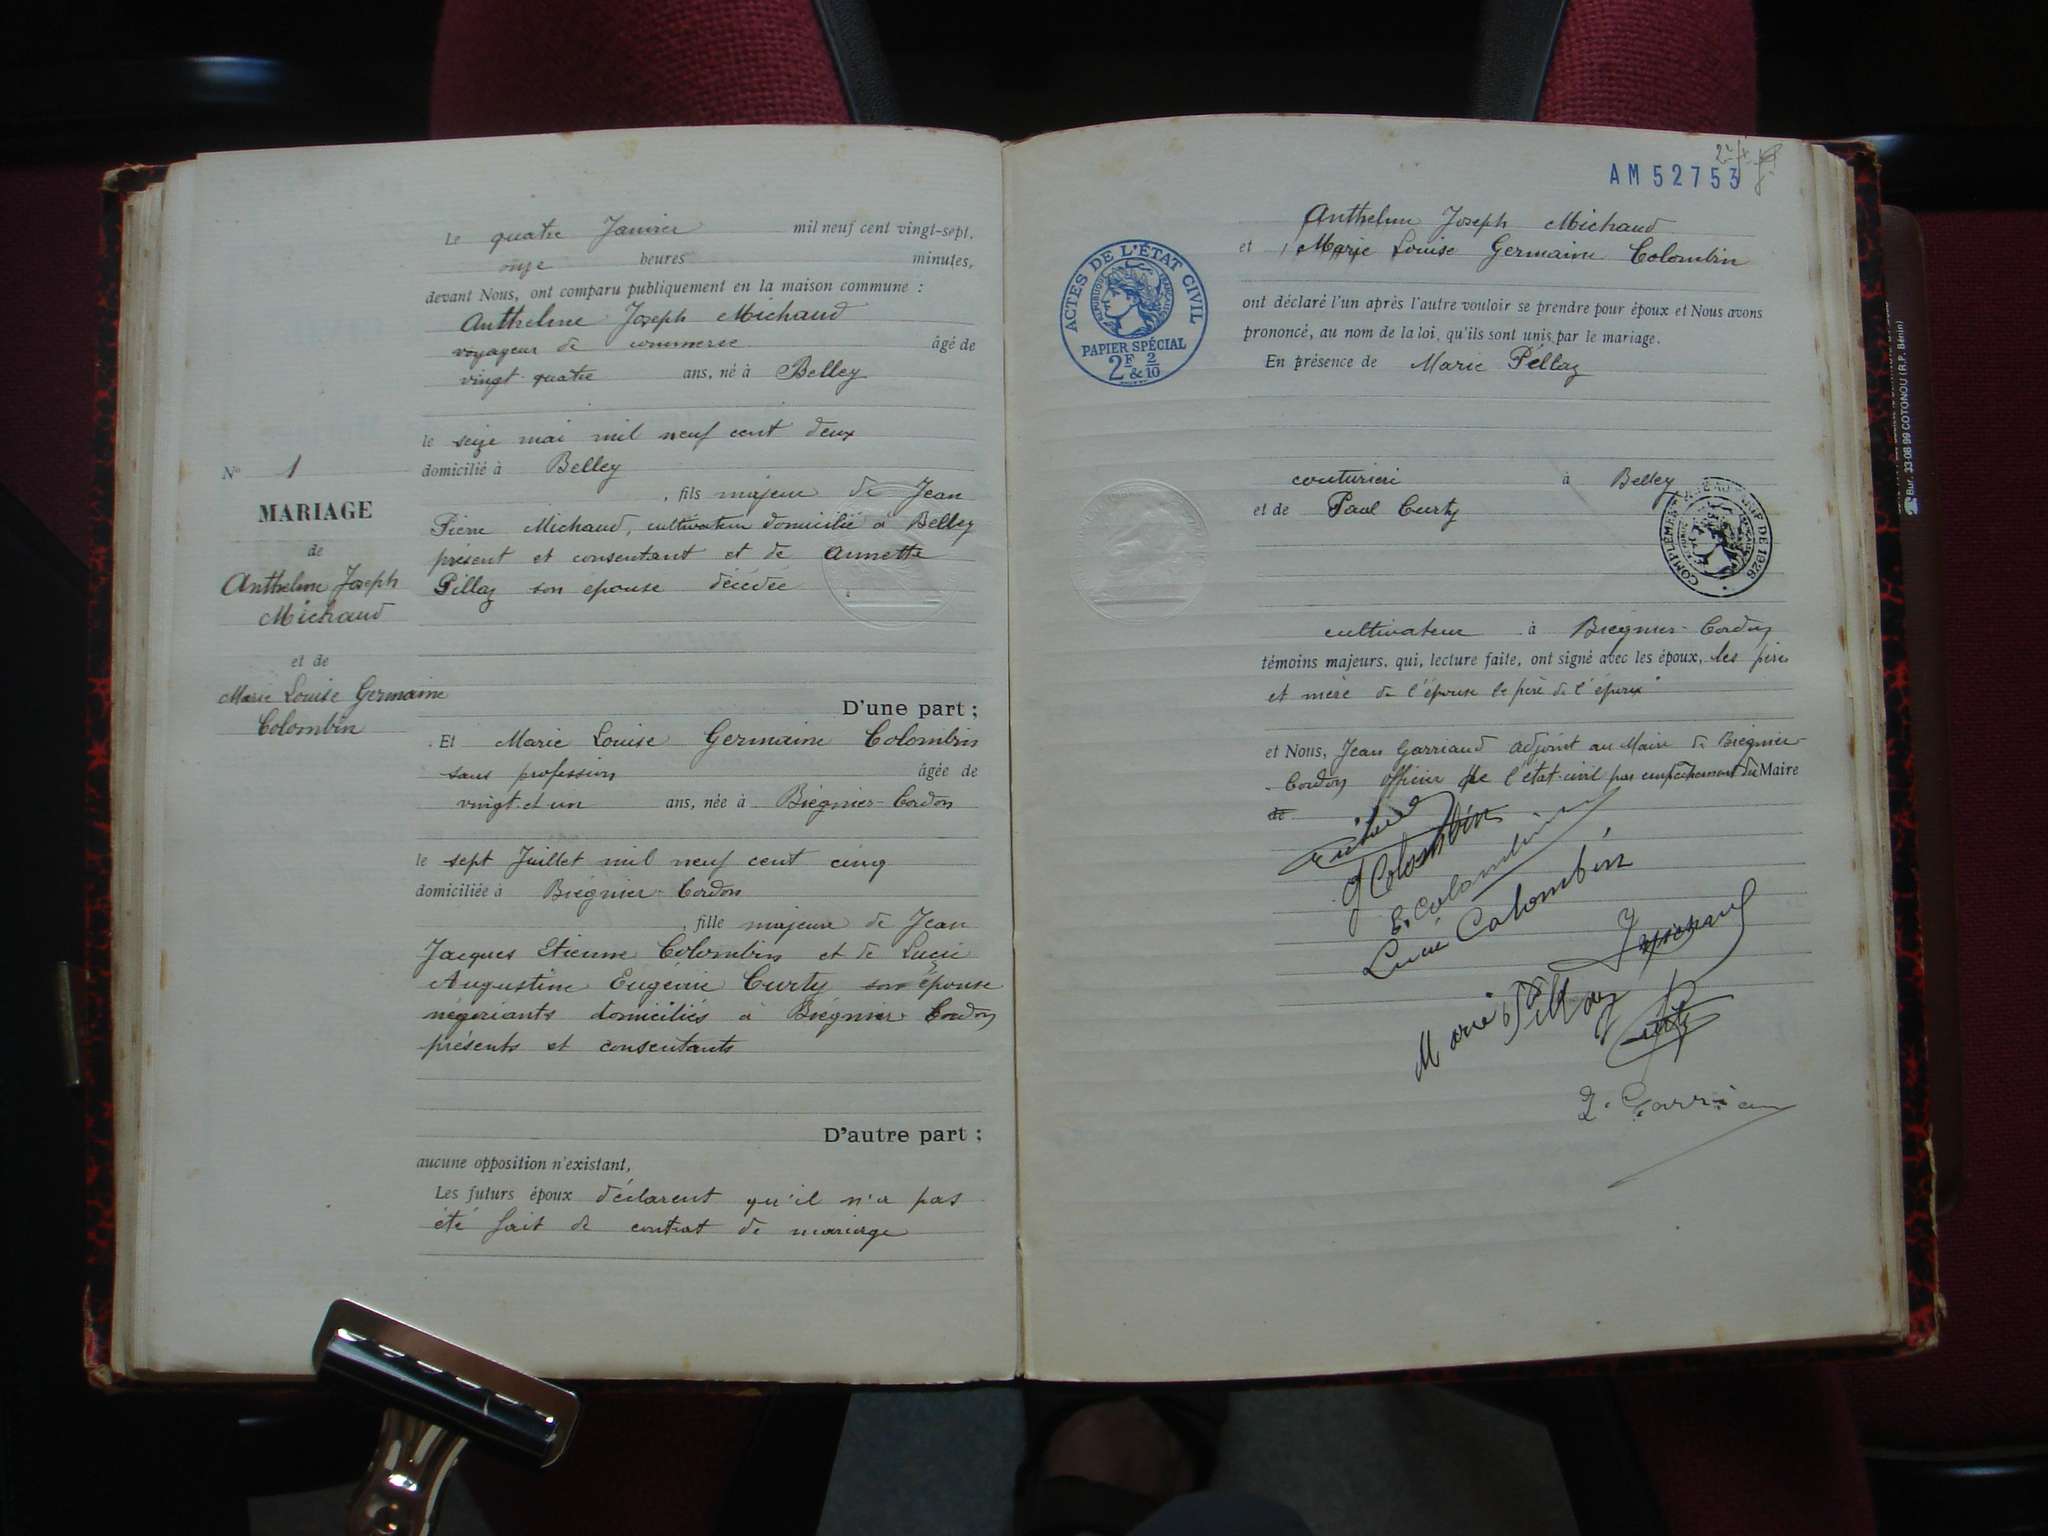 Le quatre Janvier mil neuf cent vingt-sept,
onze heures minutes,
devant Nous, ont comparu publiquement en la maison commune :
Anthelme Joseph Michaud
voyageur de commerce âgé de
vingt quatre ans, né à Belley
le seize mai mil neuf cent deux
domicilié à Belley
, fils majeur de Jean
Pierre Michaud, cultivateur domicilié à Belley
présent et consentant et de Annette
Pillaz son épouse décédée
D'une part ;
Et Marie Louise Germaine Colombin
sans profession âgée de
vingt et un ans, née à Brégnier-Cordon
le sept Juillet mil neuf cent cinq
domiciliée à Brégnier-Cordon
, fille majeure de Jean
Jacques Etienne Colombin et de Lucie
Augustine Eugénie Curty son épouse
négociants domiciliés à Brégnier-Cordon
présents et consentants
D'autre part ;
aucune opposition n'existant,
Les futurs époux déclarent qu'il n'a pas
été fait de contrat de mariage
N° 1
MARIAGE
de
Anthelme Joseph
Michaud
et de
Marie Louise Germaine
Colombin
AM 52753
Anthelme Joseph Michaud
et Marie Louise Germaine Colombin
ont déclaré l'un après l'autre vouloir se prendre pour époux et Nous avons
prononcé, au nom de la loi, qu'ils sont unis par le mariage.
En présence de Marie Pillaz
couturière à Belley
et de Paul Curty
cultivateur à Brégnier-Cordon
témoins majeurs, qui, lecture faite, ont signé avec les époux, les père
et mère de l'épouse le père de l'époux
et Nous, Jean Garriaud adjoint au Maire de Brégnier-
Cordon officier de l'état-civil par empêchement du Maire
de
Michaud
G Colombin
E. Colombin
Lucie Colombin
J Michaud
Marie Pillaz
Curty
J. Garriau
ACTES DE L'ÉTAT CIVIL
RÉPUBLIQUE FRANÇAISE
PAPIER SPÉCIAL
2F & 2/10
COMPLÉMENT
DE 1926
Bur. 33-08-99 COTONOU (R.P. Bénin)